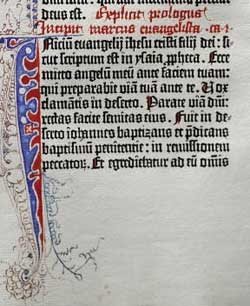 deus est. Explicit prologus
Incipit marcus evangelista. ca. i
Iniciũ euangelij ihesu cristi filij dei: si-
cut scriptum est in ysaia, ppheta. Ecce
mitto angelũ meũ ante faciem tuam:
qui preparabit viã tuã ante te. Vox
clamãtis in deserto. Parate viã dñi:
rectas facite semitas eius. Fuit in de-
serto iohannes baptizans et p̃dicans
baptismũ penitentie: in remissionem
peccatorũ. Et egrediebatur ad eũ omnis